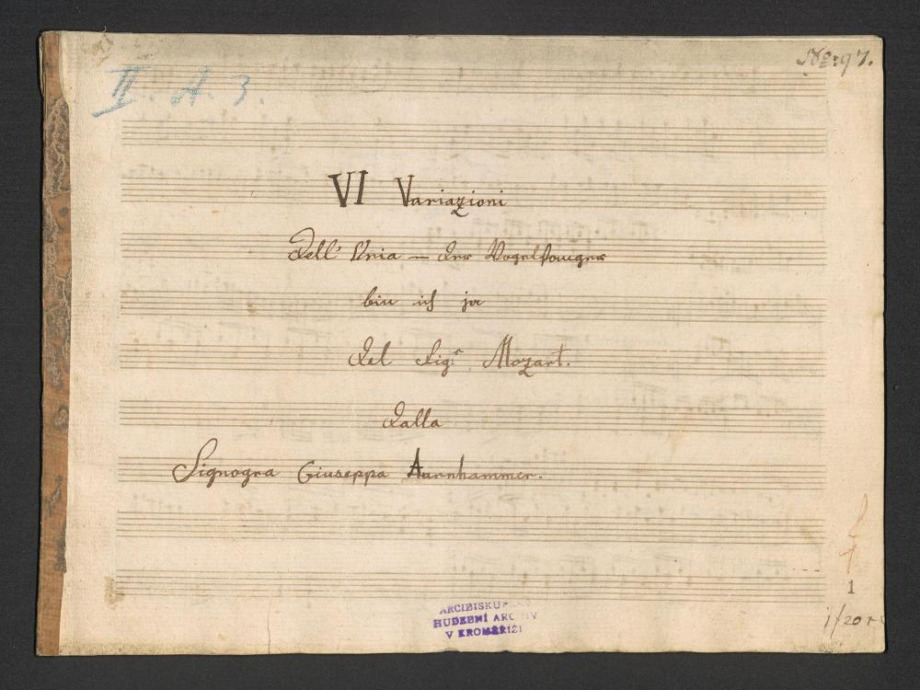 No: 97.
II A. 3.
VI Variazioni
Dell' Aria — der Vogelfanger
bin ich ja
Del Sigr Mozart.
Dalla
Signogra Giuseppa Aurnhammer.
1
1/20
ARCIBISKUP
HUDEBNÍ ARCHIV
V KROMĚŘÍŽI